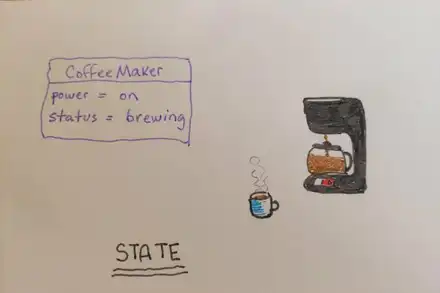 CoffeeMaker
power = on
status = brewing
STATE